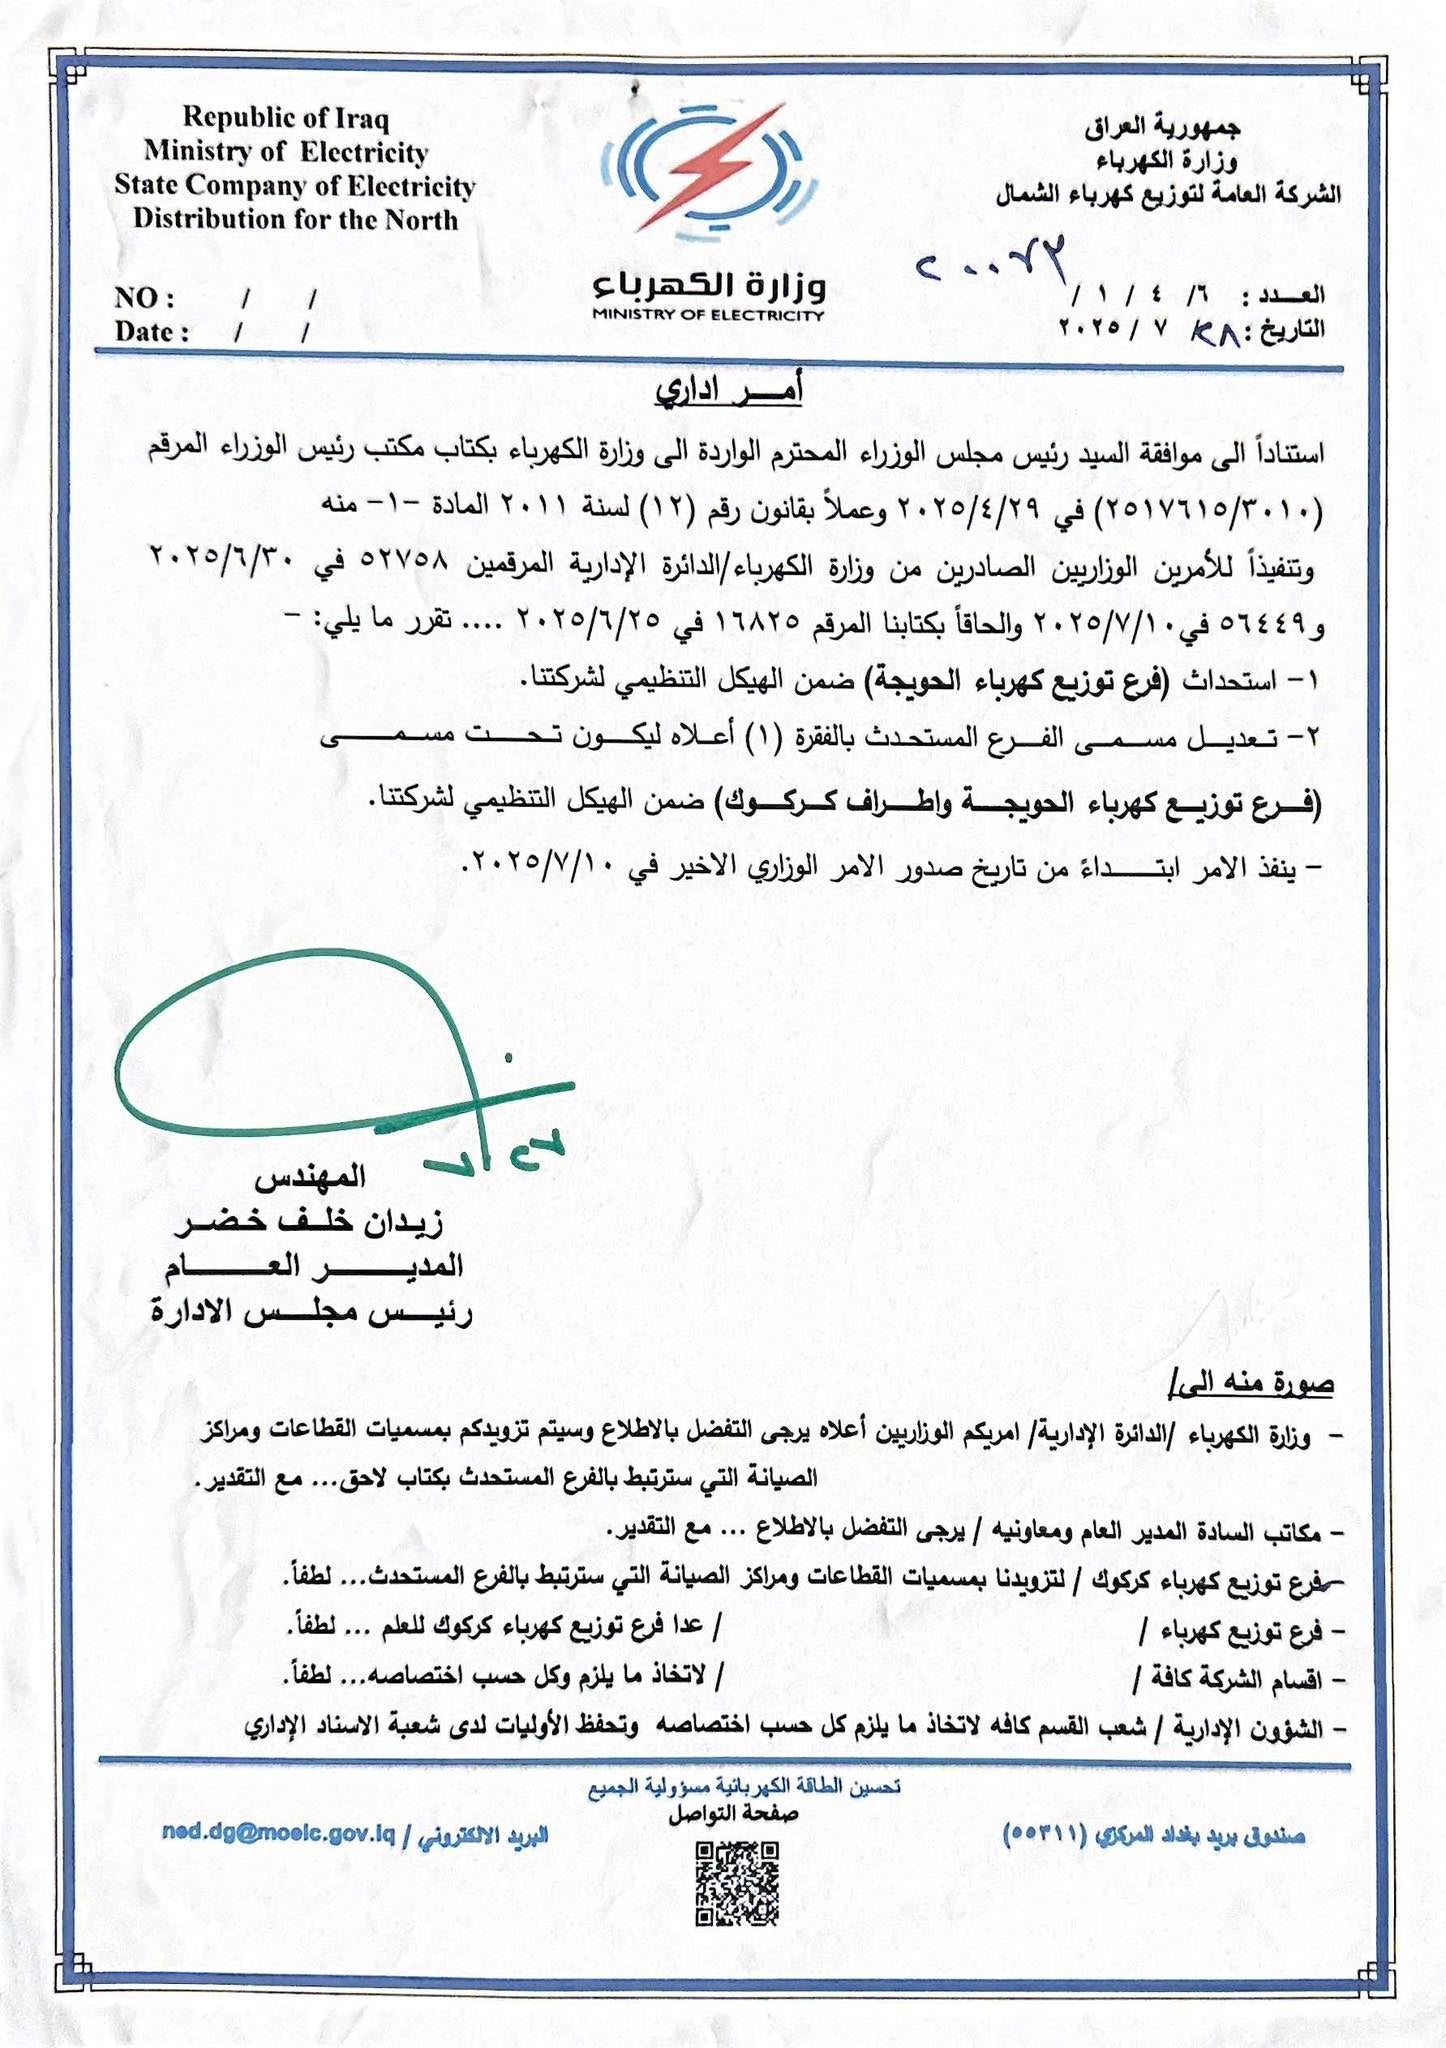 Republic of Iraq
Ministry of Electricity
State Company of Electricity
Distribution for the North
NO : / /
Date : / /
وزارة الكهرباء
MINISTRY OF ELECTRICITY
جمهورية العراق
وزارة الكهرباء
الشركة العامة لتوزيع كهرباء الشمال
العـــدد : ٦/ ٤ / ١ / ٢٠٠٧٣
التاريخ : ٢٨/ ٧ / ٢٠٢٥
أمـــر اداري
استناداً الى موافقة السيد رئيس مجلس الوزراء المحترم الواردة الى وزارة الكهرباء بكتاب مكتب رئيس الوزراء المرقم
(٢٥١٧٦١٥/٣٠١٠) في ٢٠٢٥/٤/٢٩ وعملاً بقانون رقم (١٢) لسنة ٢٠١١ المادة -١- منه
وتنفيذاً للأمرين الوزاريين الصادرين من وزارة الكهرباء/الدائرة الإدارية المرقمين ٥٢٧٥٨ في ٢٠٢٥/٦/٣٠
و٥٦٤٤٩ في ٢٠٢٥/٧/١٠ والحاقاً بكتابنا المرقم ١٦٨٢٥ في ٢٠٢٥/٦/٢٥ .... تقرر ما يلي: -
١- استحداث (فرع توزيع كهرباء الحويجة) ضمن الهيكل التنظيمي لشركتنا.
٢- تـعديـل مسـمى الفـرع المستـحدث بالفقرة (١) أعـلاه ليكـون تـحـت مسـمــى
(فـرع توزيـع كهرباء الحويجـة واطـراف كـركـوك) ضمن الهيكل التنظيمي لشركتنا.
- ينفذ الامر ابتـــداءً من تاريخ صدور الامر الوزاري الاخير في ٢٠٢٥/٧/١٠.
٢٧/٧
المهندس
زيـدان خلـف خـضـر
المديـــر العـــام
رئيـس مجلـس الادارة
صورة منه الى/
- وزارة الكهرباء /الدائرة الإدارية/ امريكم الوزاريين أعلاه يرجى التفضل بالاطلاع وسيتم تزويدكم بمسميات القطاعات ومراكز
الصيانة التي سترتبط بالفرع المستحدث بكتاب لاحق... مع التقدير.
- مكاتب السادة المدير العام ومعاونيه / يرجى التفضل بالاطلاع ... مع التقدير.
- فرع توزيع كهرباء كركوك / لتزويدنا بمسميات القطاعات ومراكز الصيانة التي سترتبط بالفرع المستحدث... لطفاً.
- فرع توزيع كهرباء / / عدا فرع توزيع كهرباء كركوك للعلم ... لطفاً.
- اقسام الشركة كافة / / لاتخاذ ما يلزم وكل حسب اختصاصه... لطفاً.
- الشؤون الإدارية / شعب القسم كافه لاتخاذ ما يلزم كل حسب اختصاصه وتحفظ الأوليات لدى شعبة الاسناد الإداري
تحسين الطاقة الكهربائية مسؤولية الجميع
صفحة التواصل
صندوق بريد بغداد المركزي (٥٥٣١١)
البريد الالكتروني / ned.dg@moelc.gov.iq